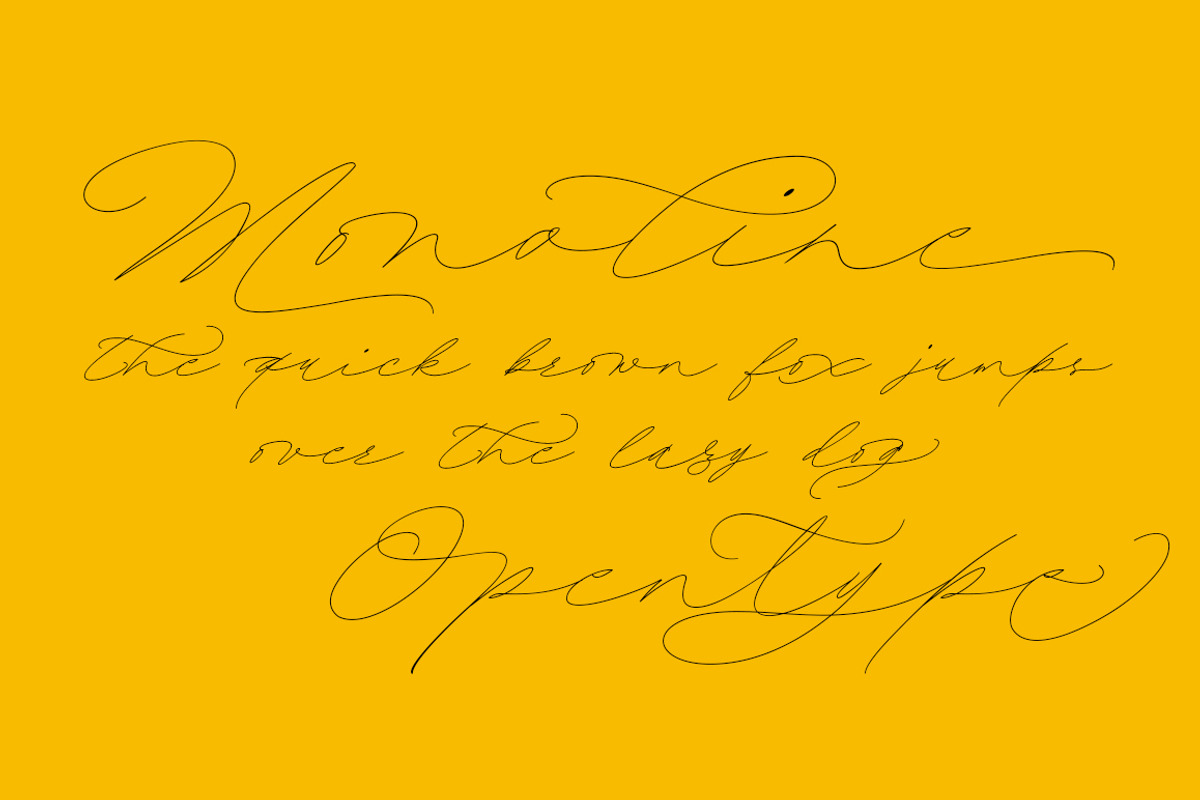 Monoline
the quick brown fox jumps
over the lazy dog
Opentype